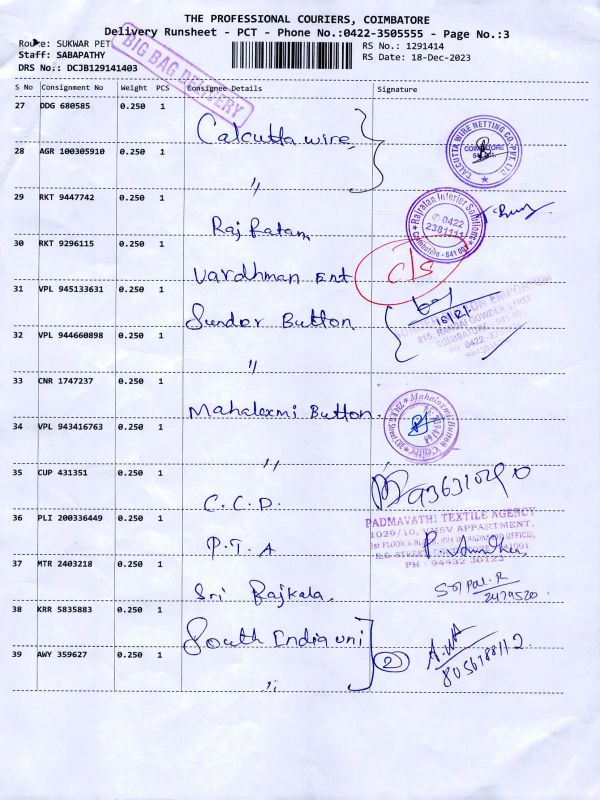 THE PROFESSIONAL COURIERS, COIMBATORE
Delivery Runsheet - PCT - Phone No.:0422-3505555 - Page No.:3
Route: SUKWAR PET
RS No.: 1291414
Staff: SABAPATHY
RS Date: 18-Dec-2023
DRS No.: DCJB129141403
BIG BAG DELIVERY
S No Consignment No Weight PCS Consignee Details Signature
27 DDG 680585 0.250 1 Calcutta wire
CALCUTTA WIRE NETTING CO. PVT. LTD.
COIMBATORE
28 AGR 100305910 0.250 1 "
29 RKT 9447742 0.250 1 Raj Ratan
Rajratan Interior Solutions
0422
2381111
Coimbatore - 641 001
30 RKT 9296115 0.250 1 Vardhman Ent
C/s
31 VPL 945133631 0.250 1 Sunder Button
215, RANGAI GOWDER STREE
COIMBATORE
PH: 0422
32 VPL 944660898 0.250 1 "
33 CNR 1747237 0.250 1 Mahalaxmi Button.
Mahalaxmi Button Centre
34 VPL 943416763 0.250 1 "
35 CUP 431351 0.250 1 C.C.D.
36 PLI 200336449 0.250 1 P.T.A
PADMAVATHI TEXTILE AGENCY
1029/10, VMSV APPARTMENT,
PH : 94432 36122
37 MTR 2403218 0.250 1 Sri Rajkala
2479520
38 KRR 5835883 0.250 1 South India uni
2
39 AWY 359627 0.250 1 "